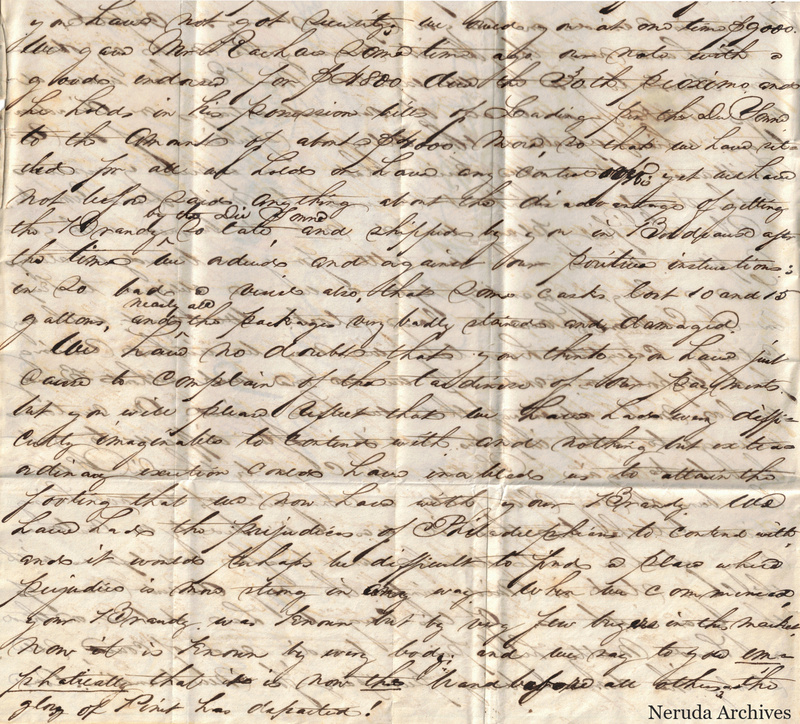 you have not got security, we owed you at one time $9000.
We gave Mr Eachae some time ago our note with a
good endorser for $4800 due the 30th proximo and
he holds in his possession bills of Lading for the Du Tonne
to the amount of about $4000 more, so that we have sit
ted for all of holds or have any control over, yet we have
not before said anything about the disadvantage of getting
by the Du Tonne
the Brandy so late and shipped by you in Bordeaux after
the time we ordered and against our positive instructions;
in so bad a vessel also, that some casks lost 10 and 15
nearly all
gallons, and the packages very badly stained and damaged.
We have no doubt that you think you have just
cause to complain of the tardiness of our payments
but you will please reflect that we have had every diffi-
culty imaginable to contend with and nothing but extra
ordinary exertion could have enabled us to attain the
footing that we now have with your Brandy. We
have had the prejudices of Philadelphians to contend with
and it would perhaps be difficult to find a place where
prejudice is more strong in any way. When we commenced
your Brandy was known but by very few buyers in the market
now it is known by every body, and we say to you em-
phatically that it is now the brand before all others, the
glory of Pinet has departed!
Neruda Archives